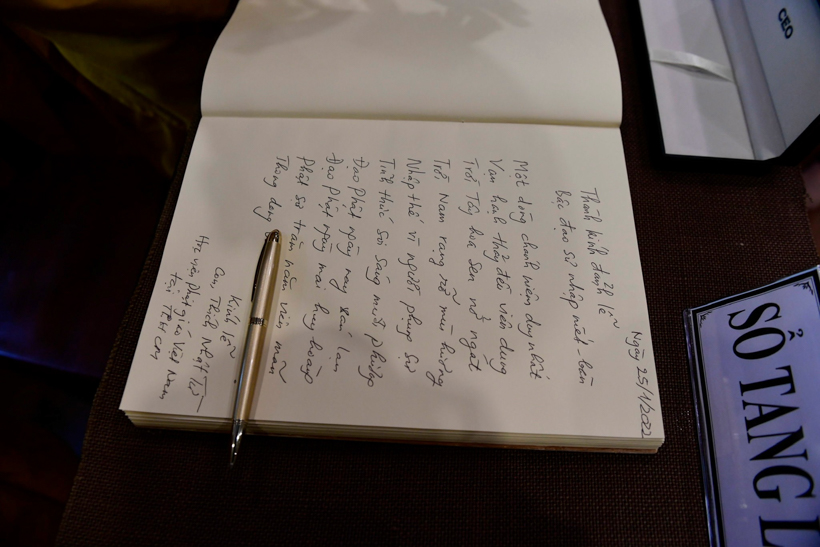 Ngày 25/1/2022
Thành kính đảnh lễ
bậc đạo sư nhập niết-bàn
Một dòng chánh niệm duy nhất
Vạn hạnh thảy đều viên dung
Trời Tây hoa sen nở ngát
Trời Nam rạng rỡ mùi hương
Nhập thế vì người phụng sự
Tỉnh thức soi sáng mười phương
Đạo Phật ngày nay xán lạn
Đạo Phật ngày mai huy hoàng
Phật sự trăm năm viên mãn
Thong dong
Kính lễ
Con, Thích Nhật Từ
Học viện Phật giáo Việt Nam
tại TP.HCM
SỔ TANG
CEO